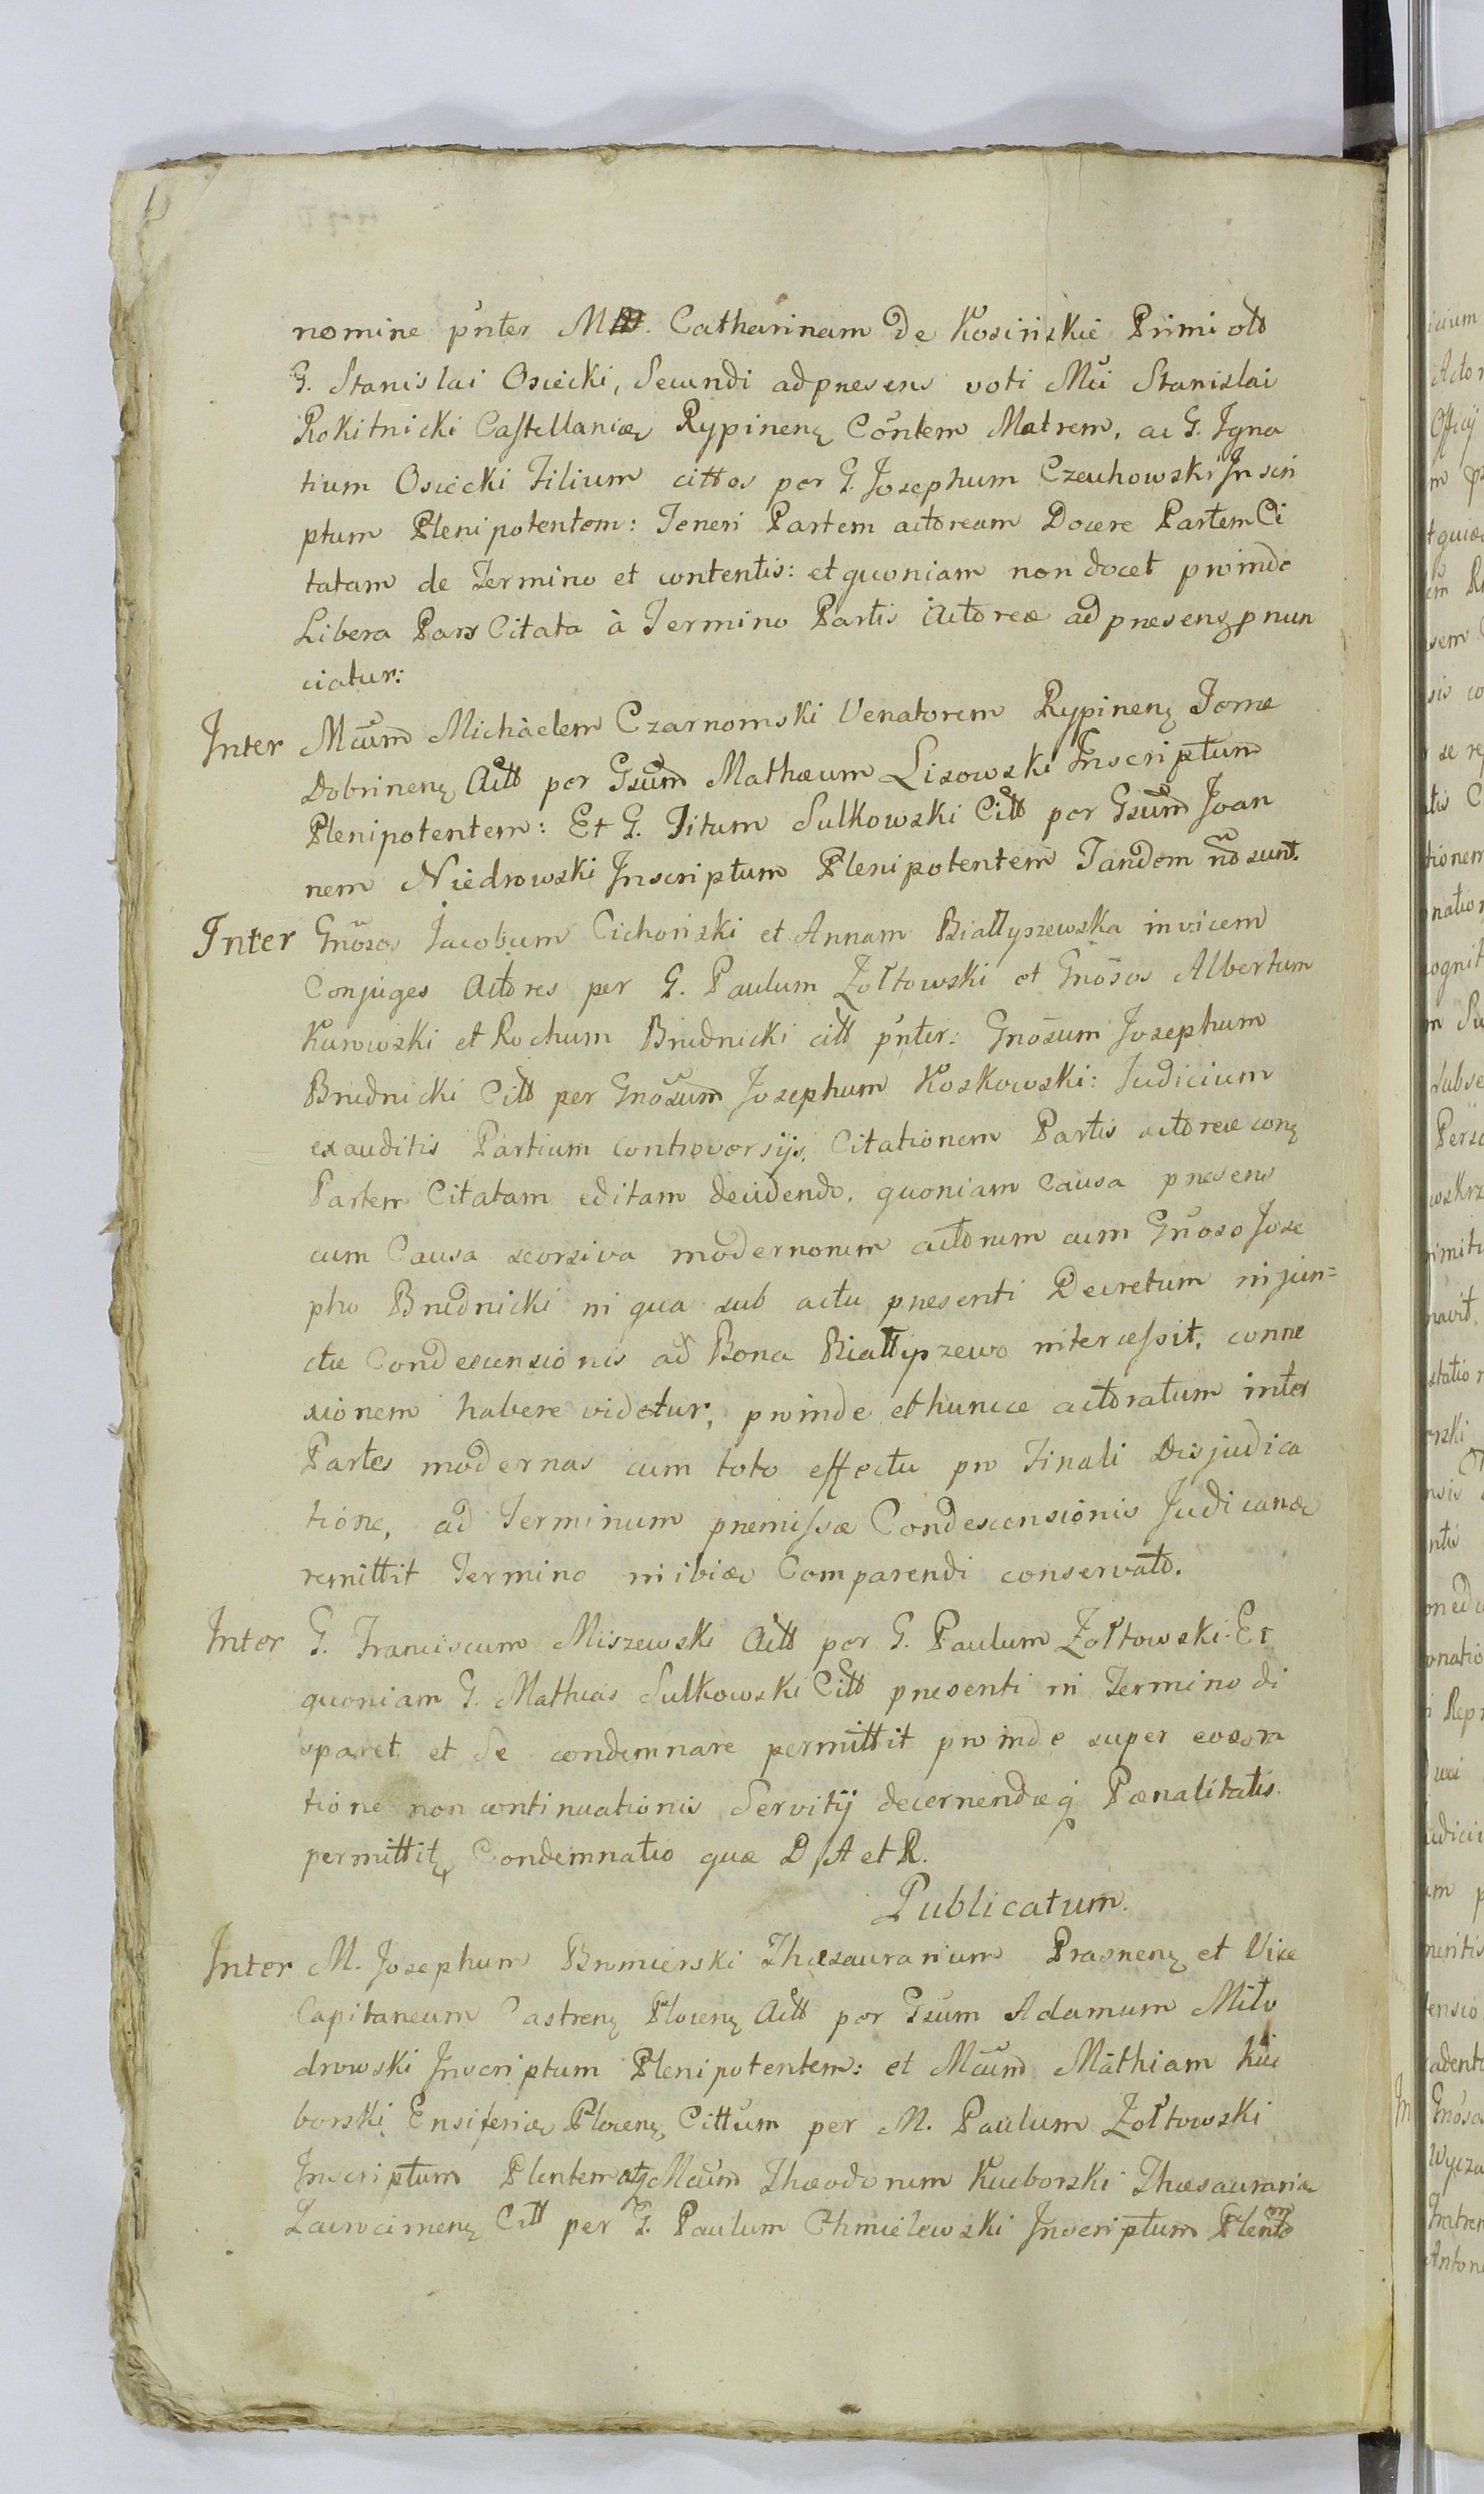 nomine pñter M. Catharinam de Kosinskie Primi olt
G. Stanislai Osiecki, Secundi ad præsens voti Mci Stanislai
Rokitnicki Castellaniæ Rypinenẓ Cõntem Matrem, ac G. Igna
tium Osiecki Filium cittos per G. Josephum Czeuhowski Inscri
ptum Plenipotentem: Teneri Partem actoream Docere Partem Ci
tatam de Termino et contentis: et quoniam non docet proinde
Libera Pars Citata à Termino Partis Actoreæ ad præsens pnun
ciatur:
Inter Mcum Michàelem Czarnomski Venatorem Rypinenẓ Terræ
Dobrinenẓ Actt per Gsum Mathæum Lisowski Inscriptum
Plenipotentem: Et G. Titum Sulkowski Citt per Gsum Joan
nem Niedrowski Inscriptum Plenipotentem Tandem nõ sunt.
Inter Gnõsos Jacobum Cichoński et Annam Białłyszewska invicem
Conjuges Actores per G. Paulum Zołtowski et Gnõsos Albertum
Kurowski et Rochum Brudnicki citt pñter: Gnõsum Josephum
Brudnicki Citt per Gnõsum Josephum Koskowski: Judicium
exauditis Partium controversijs, Citationem Partis actoreæ conẓ
Partem Citatam editam decidendo, quoniam Causa præsens
cum Causa seorsiva modernorum actorum cum Gnõso Jose
pho Brudnicki in qua sub actu præsenti Decretum in jun=
ctu Condescensionis ad Bona Białłyszewo intercessit, conne
xionem habere videtur, proinde et hunce actoratum inter
Partes modernas cum toto effectu pro Finali Disjudica
tione, ad Terminum præmissæ Condescensionis Judicandæ
remittit Termino inibiæ Comparendi conservato.
Inter G. Franciscum Miszewski Actt per G. Paulum Zołtowski Et
quoniam G. Mathias Sulkowski Citt præsenti in Termino di
sparet et se condemnare permittit proinde super evasra
tione non continuationis Servitij decernendæq̨ Pænalitatis.
permittitẓ Condemnatio quæ D/A et R.
Publicatum.
Inter M. Josephum Bromierski Thæsaurarium Prasnenẓ et Vice
Capitaneum Castrenẓ Plocenẓ Actt per Gsum Adamum Milo
drowski Inscriptum Plenipotentem: et Mcum Mathiam Kuc
borski Ensiferiæ Plocenẓ Cittum per M. Paulum Zołtowski
Inscriptum Plentem atq Mcum Thæodorum Kucborski Thæsaurariæ
Citt per G. Paulum Chmielewski Inscriptum Plentem